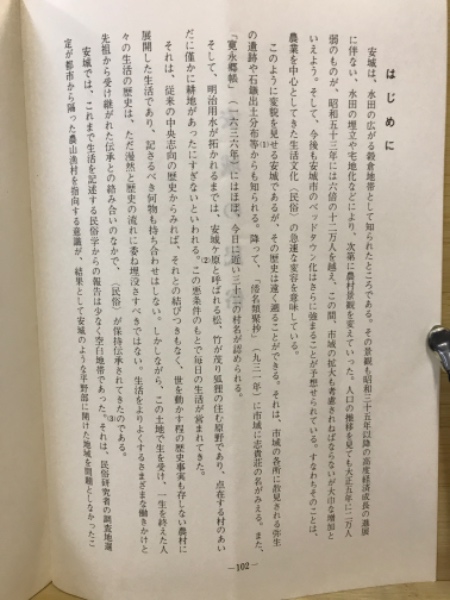 はじめに
安城は、水田の広がる穀倉地帯として知られたところである。その景観も昭和三十五年以降の高度経済成長の進展
に伴ない、水田の埋立や宅地化などにより、次第に農村景観を変えていった。人口の推移を見ても大正五年に二万人
弱のものが、昭和五十三年には六倍の十二万人を越え、この間、市域の拡大も考慮されねばならないが大巾な増加と
いえよう。そして、今後も安城市のベッドタウン化はさらに強まることが予想せられている。すなわちそのことは、
農業を中心としてきた生活文化(民俗)の急速な変容を意味している。
このように変貌を見せる安城であるが、その歴史は遠く遡ることができる。それは、市域の各所に散見される弥生
の遺跡や石鏃出土分布等からも知られる。(1)降って、「倭名類聚抄」(九三一年)に市域に志貴荘の名がみえる。また、
「寛永郷帳」(一六三六年)にはほぼ、今日に近い三十二の村名が認められる。
そして、明治用水が拓かれるまでは、安城ケ原と呼ばれる松、竹が茂り狐狸の住む原野であり、点在する村のあい
だに僅かに耕地があったにすぎないといわれる。(2)この悪条件のもとで毎日の生活が営まれてきた。
それは、従来の中央志向の歴史からみれば、それとの結びつきもなく、世を動かす程の歴史事実も存しない農村に
展開した生活であり、記さるべき何物も持ち合わせはしない。しかしながら、この土地で生を受け、一生を終えた人
々の生活の歴史は、ただ漫然と歴史の流れに委ね埋没さすべきではない。生活をよりよくするさまざまな働きかけと
先祖から受け継がれた伝承との絡み合いのなかで、(民俗)が保持伝承されてきたのである。
安城では、これまで生活を記述する民俗学からの報告は少なく空白地帯であった。(3)それは、民俗研究者の調査地選
定が都市から隔った農山漁村を指向する意識が、結果として安城のような平野部に開けた地域を問題としなかったこ
—102—